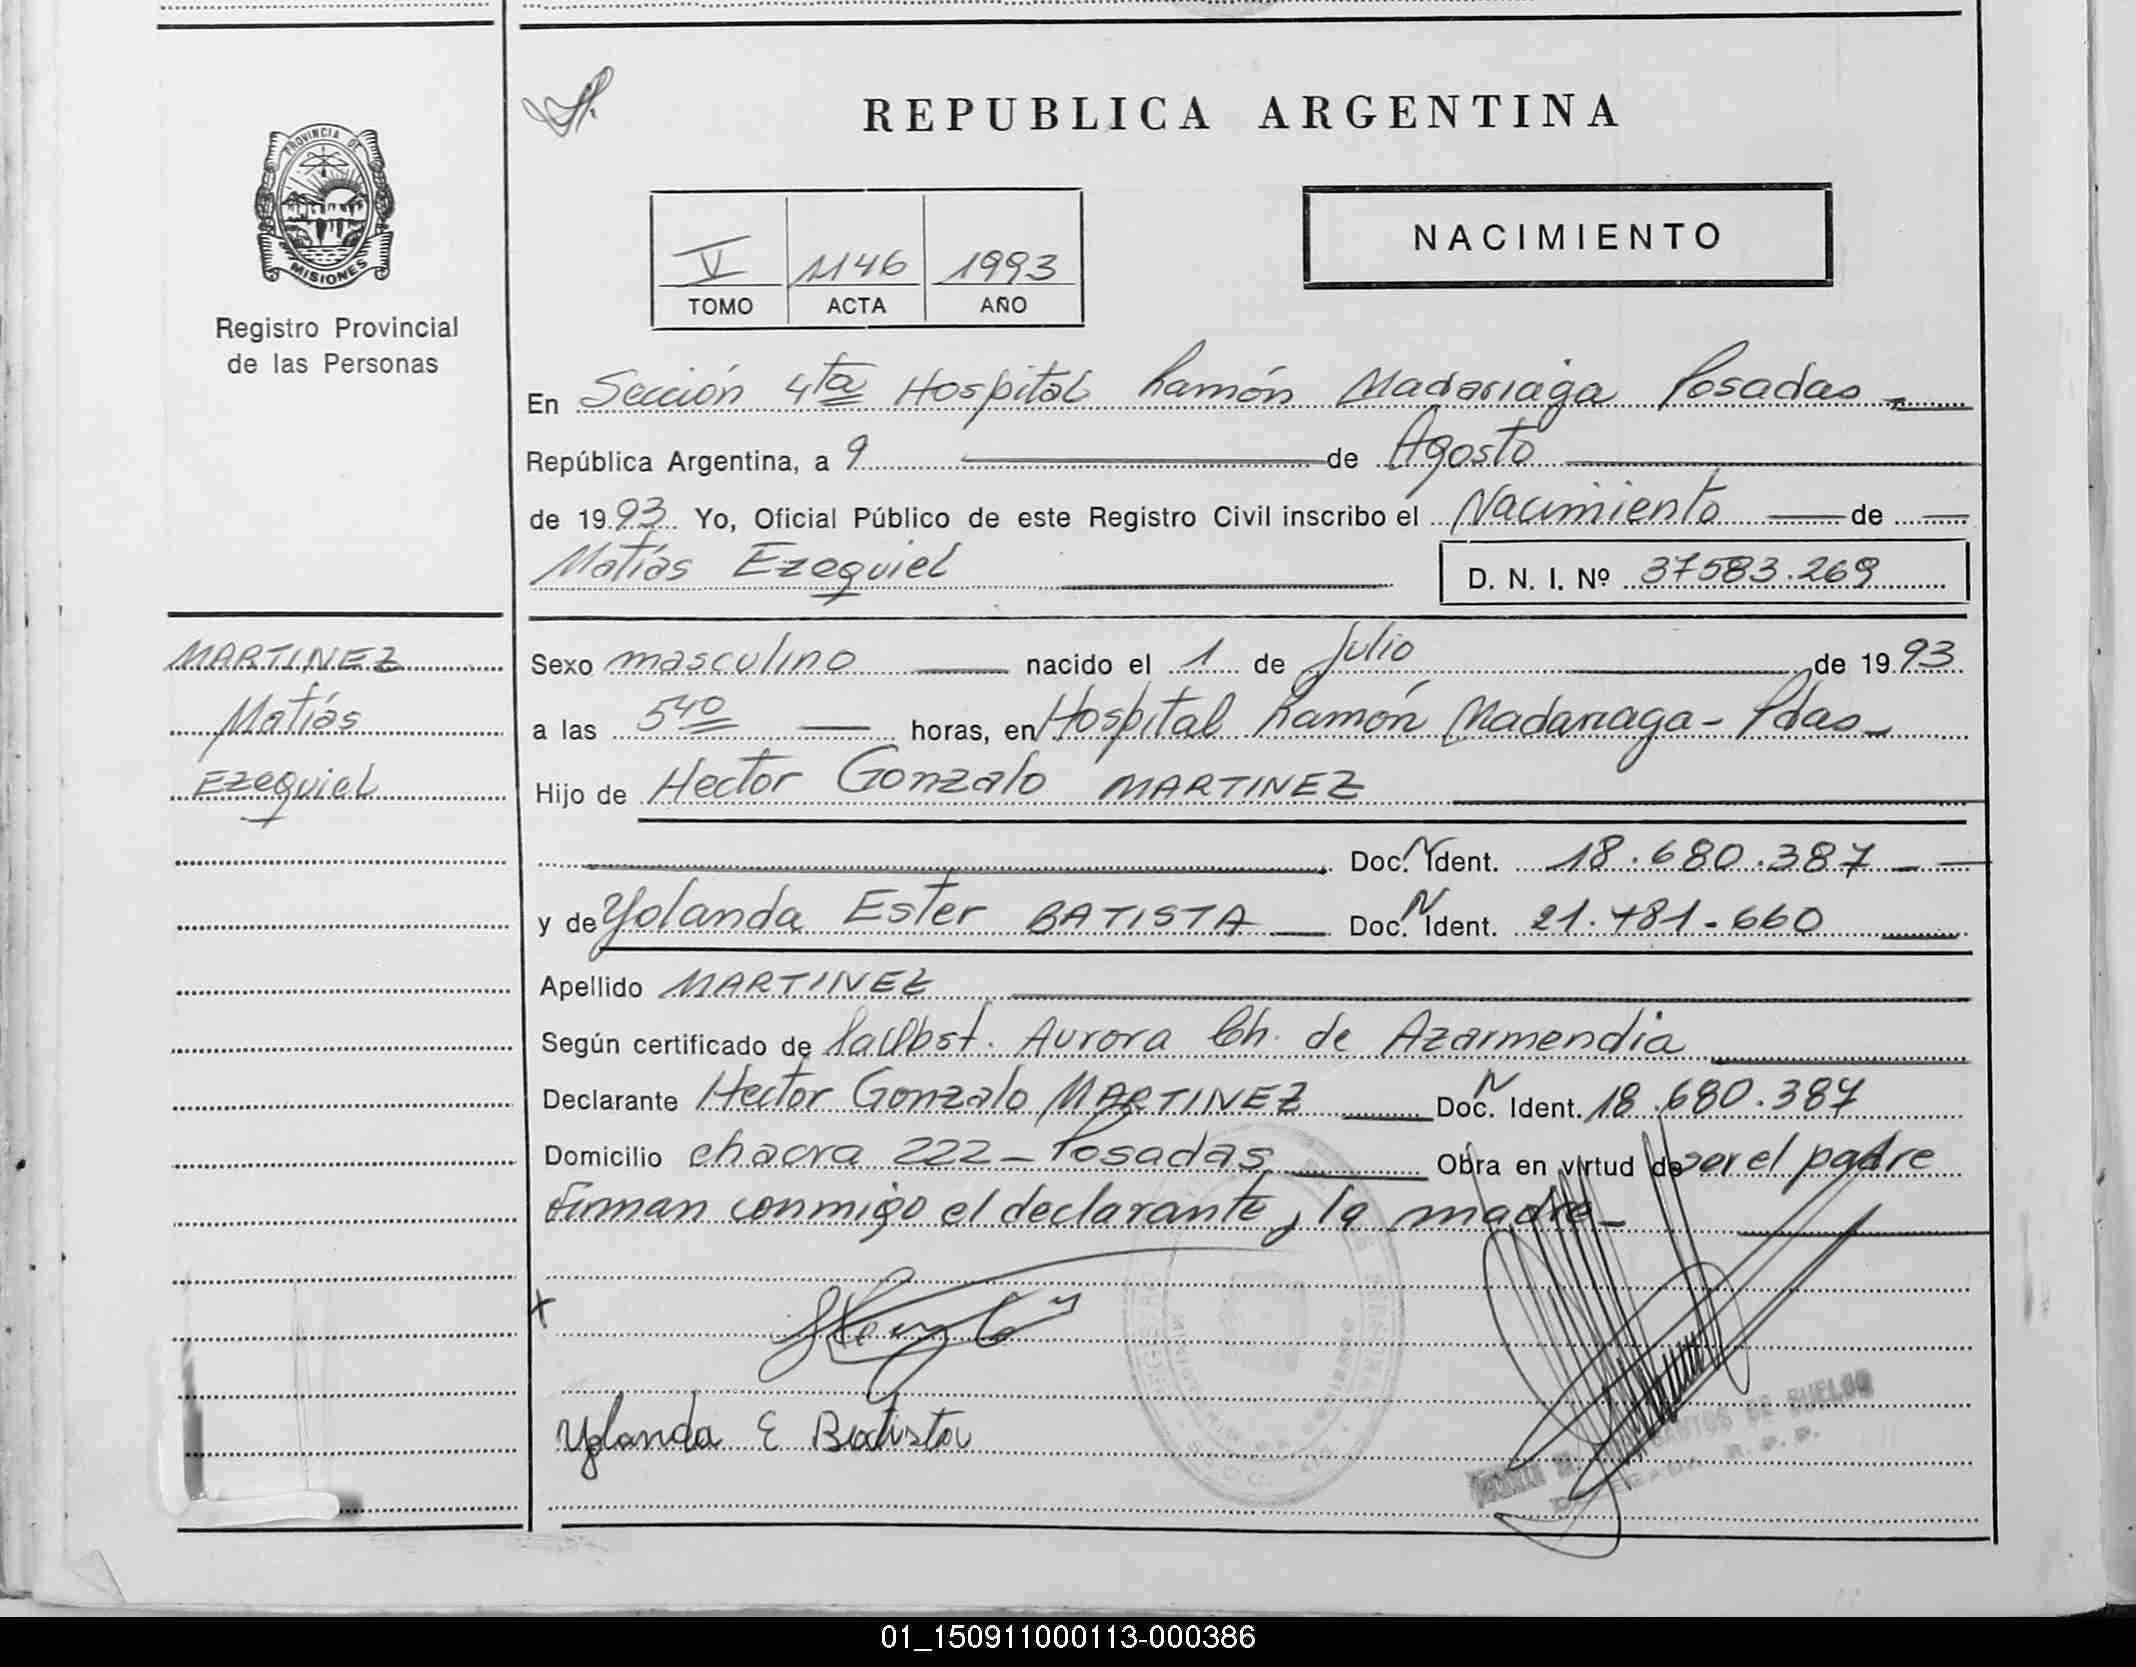 PROVINCIA DE
MISIONES
Registro Provincial
de las Personas
MARTINEZ
Matías
Ezequiel
REPUBLICA ARGENTINA
V 1146 1993
TOMO ACTA AÑO
NACIMIENTO
En Sección 4ta Hospital Ramón Madariaga Posadas
República Argentina, a 9 de Agosto
de 1993 Yo, Oficial Público de este Registro Civil inscribo el Nacimiento de
Matías Ezequiel D. N. I. Nº 37583.269
Sexo masculino nacido el 1 de Julio de 1993
a las 5 40 horas, en Hospital Ramón Madariaga - Pdas -
Hijo de Hector Gonzalo MARTINEZ
Doc. N Ident. 18.680.387
y de Yolanda Ester BATISTA Doc. N Ident. 21.781.660
Apellido MARTINEZ
Según certificado de Aurora Ch. de Azarmendia
Declarante Hector Gonzalo MARTINEZ Doc. N Ident. 18.680.387
Domicilio chacra 222 - Posadas Obra en virtud de ser el padre
Firman conmigo el declarante, la madre -
x
Yolanda E Batista
01_150911000113-000386